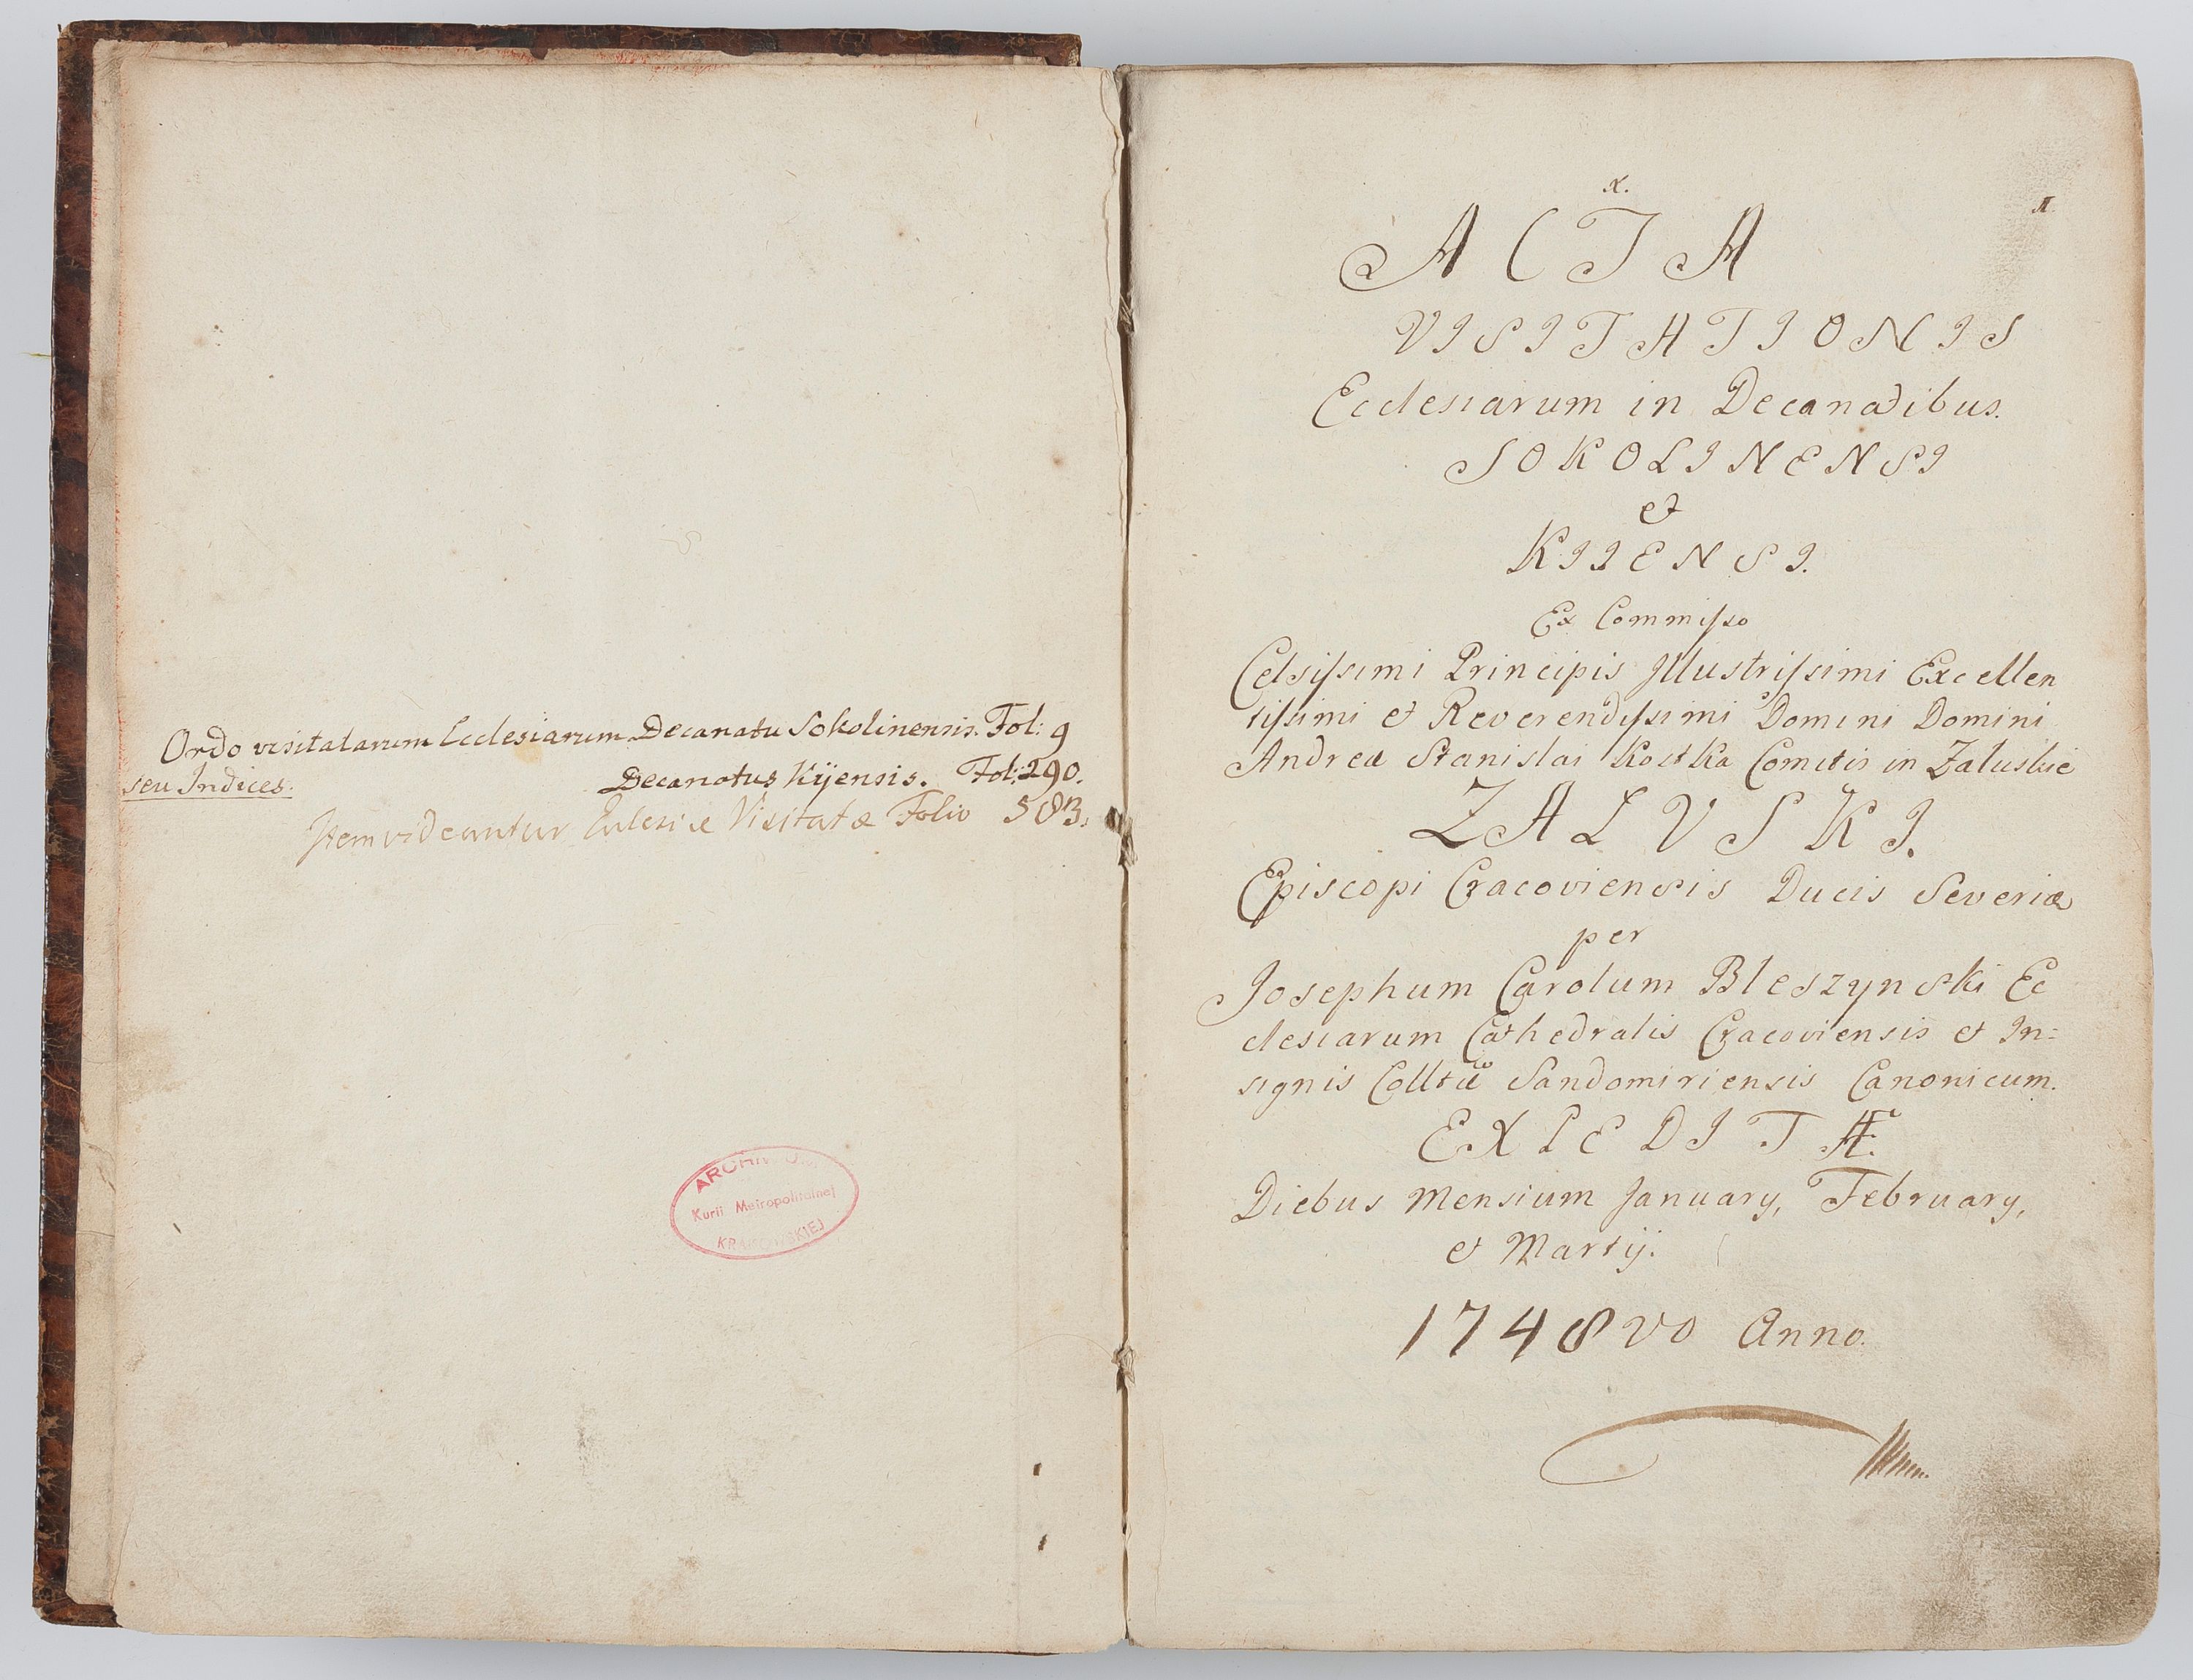 Ordo visitatarum Ecclesiarum Decanatu Sokolinensis. Fol: 9
seu Indices.
Decanatus Kijensis. Fol: 290.
Item videantur Eclesiæ Visitatæ Folio 583.
ARCHIWUM
Kurii Metropolitalnej
KRAKOWSKIEJ
1
X.
ACTA
VISITATIONIS
Ecclesiarum in Decanatibus.
SOKOLINENSI
et
KIIENSI.
Ex Commisso
Celsissimi Principis Illustrissimi Excellen
tissimi et Reverendissimi Domini Domini
Andreæ Stanislai Kostka Comitis in Zaluskie
ZALVSKI.
Episcopi Cracoviensis Ducis Severiæ
per
Josephum Carolum Bleszynski Ec
clesiarum Cathedralis Cracoviensis et In=
signis Colltæ Sandomiriensis Canonicum.
EXPEDITÆ.
Diebus Mensium January, February,
et Martij.
1748vo Anno.